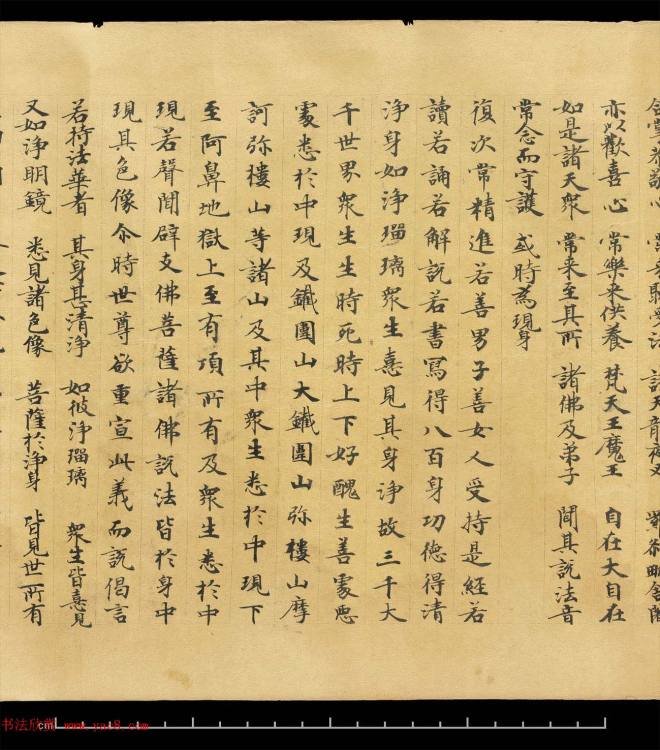 合掌恭敬心 常来聽受法 諸天龍夜叉
亦以歡喜心 常樂来供養 梵天王魔王 自在大自在
如是諸天衆 常来至其所 諸佛及弟子 聞其說法音
常念而守護 或時為現身
復次常精進若善男子善女人受持是經若
讀若誦若解說若書寫得八百身功德得清
淨身如淨瑠璃衆生憙見其身淨故三千大
千世界衆生生時死時上下好醜生善處惡
處悉於中現及鐵圍山大鐵圍山弥樓山摩
訶弥樓山等諸山及其中衆生悉於中現下
至阿鼻地獄上至有頂所有及衆生悉於中
現若聲聞辟支佛菩薩諸佛說法皆於身中
現其色像尒時世尊欲重宣此義而說偈言
若持法華者 其身甚清淨 如彼淨瑠璃 衆生皆憙見
又如淨明鏡 悉見諸色像 菩薩於淨身 皆見世所有
书法欣赏 www.yac8.com
cm